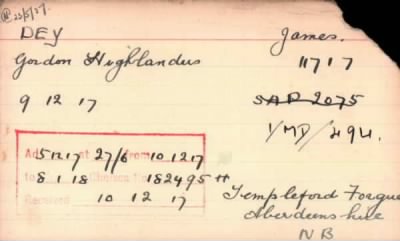 23/5/27.
DEY James.
Gordon Highlanders 11717
9 12 17 SAP 2075
1/MD/494.
Ad 5 12 17 at 27/6 from 10 12 17
to 8 1 18 182495 H
Received 10 12 17
Templeford Forgue
Aberdeenshire
NB